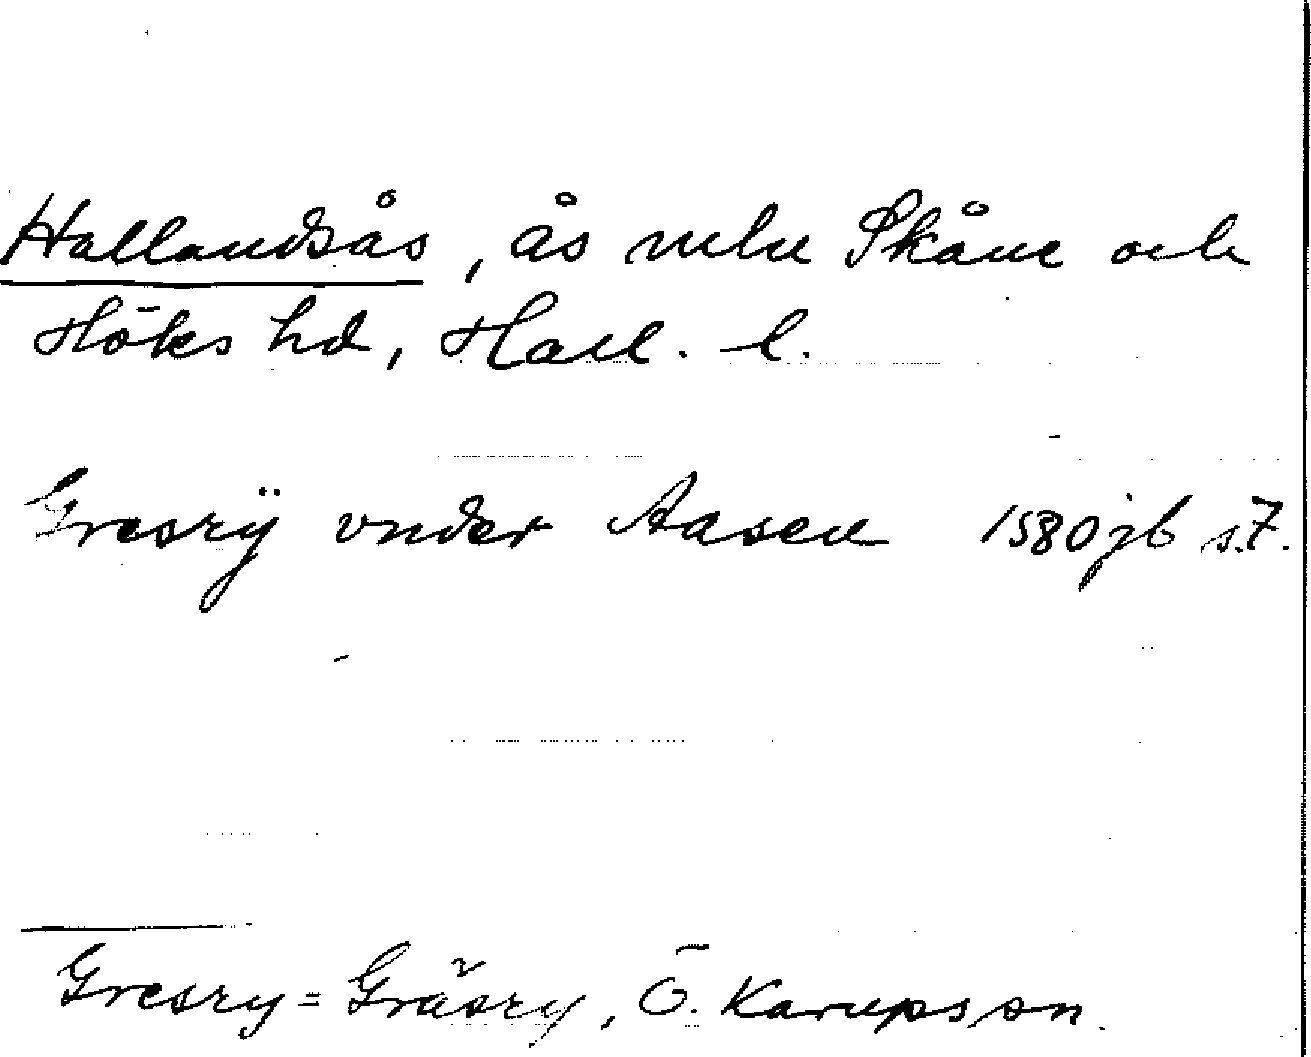 Hallandsås, ås mln Skåne och
Höks hd, Hall. l.
Gresrÿ vnder Aasen 1580 jb s.7.
Gresry = Gräsry, Ö. Karups sn.